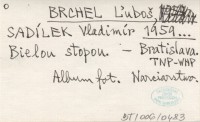 BRCHEL Ľuboš,
SADÍLEK Vladimír 1959...
Bielou stopou. - Bratislava.
TNP-WHP
Album fot. Narciarstwo.
BT/006/0483